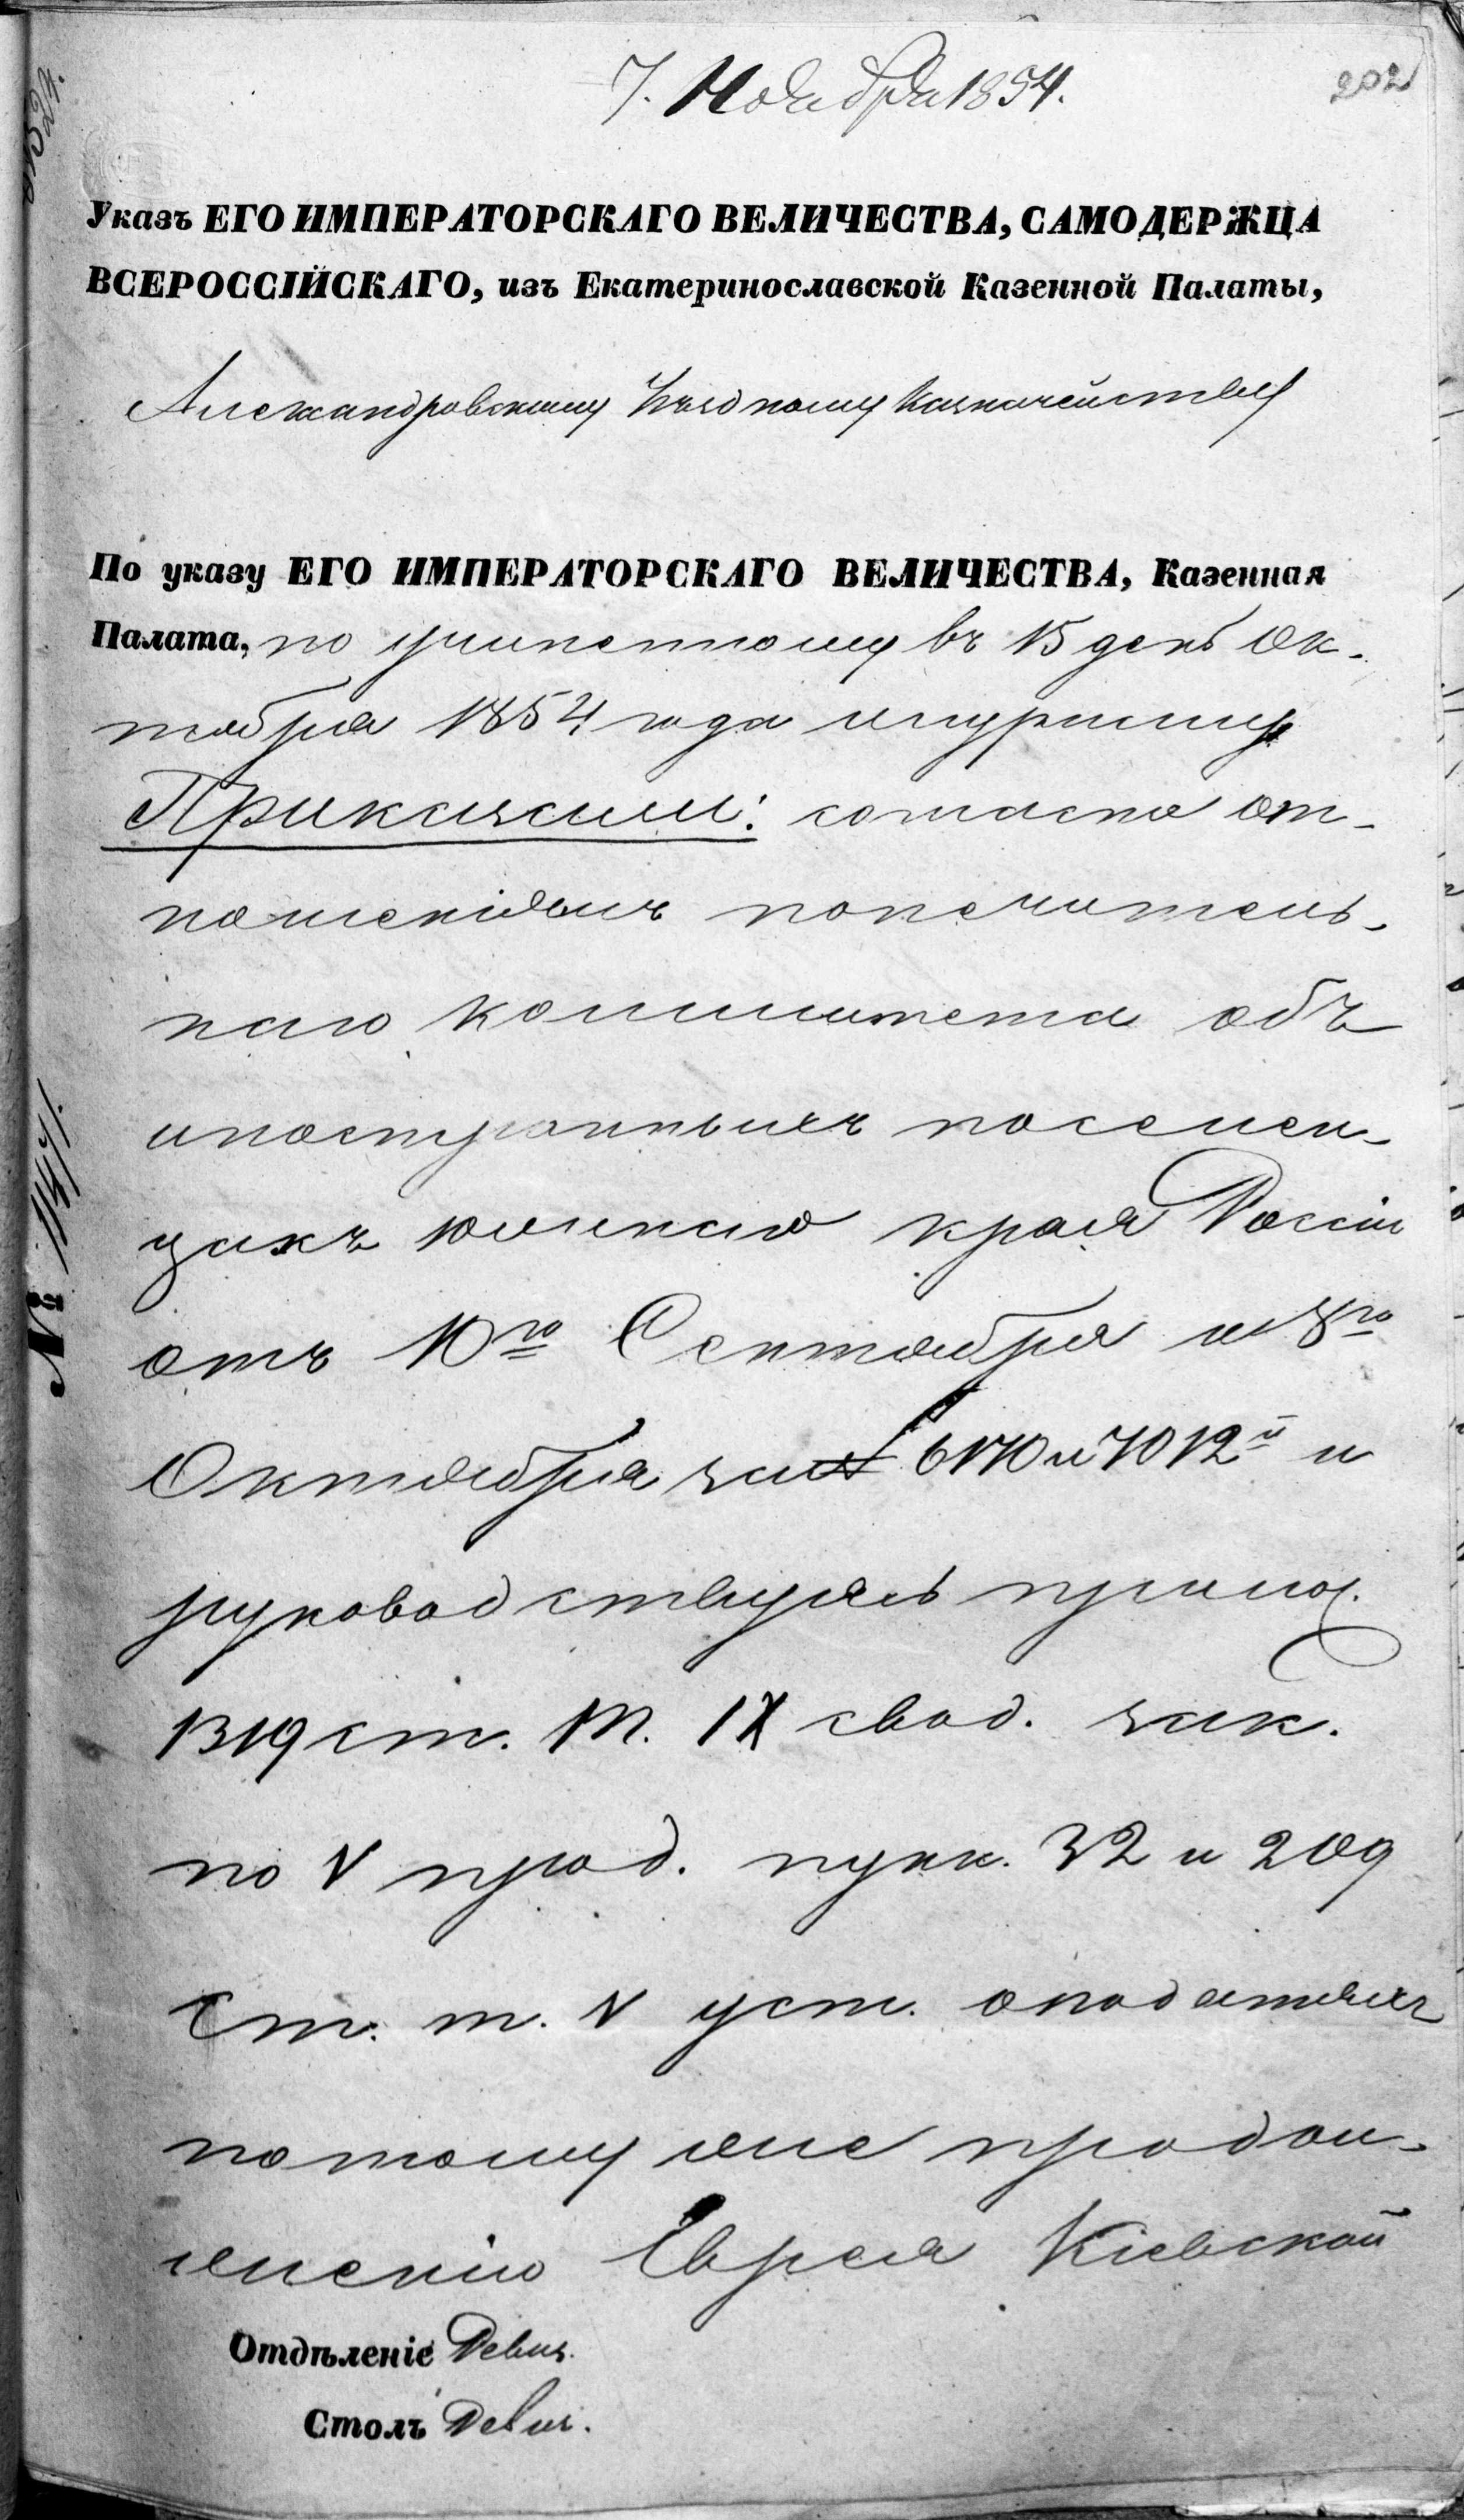 7. Ноября 1854.
202
Указъ ЕГО ИМПЕРАТОРСКАГО ВЕЛИЧЕСТВА, САМОДЕРЖЦА
ВСЕРОССІЙСКАГО, изъ Екатеринославской Казенной Палаты,
Александровскому Уѣздному Казначейству
По указу ЕГО ИМПЕРАТОРСКАГО ВЕЛИЧЕСТВА, Казенная
Палата, по учиненному въ 15 день Ок-
тября 1854 года журналу
Приказали: согласно от-
ношеніямъ попечитель-
наго комитета объ
иностранныхъ поселен-
цахъ южнаго края Россіи
отъ 10го Сентября и 8го
Октября за № 6170 и 7012й и
руководствуясь прилож.
1319 ст. Т. IX свод. зак.
по V прод. пунк. 32 и 209
Ст. т. V уст. о податяхъ
потому же продол-
женію Еврея Кіевской
Отдѣленіе Ревиз.
Столъ Ревиз.
№ 1147.